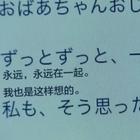 おばあちゃんおじ
ずっとずっと、一
永远，永远在一起。
我也是这样想的。
私も、そう思った